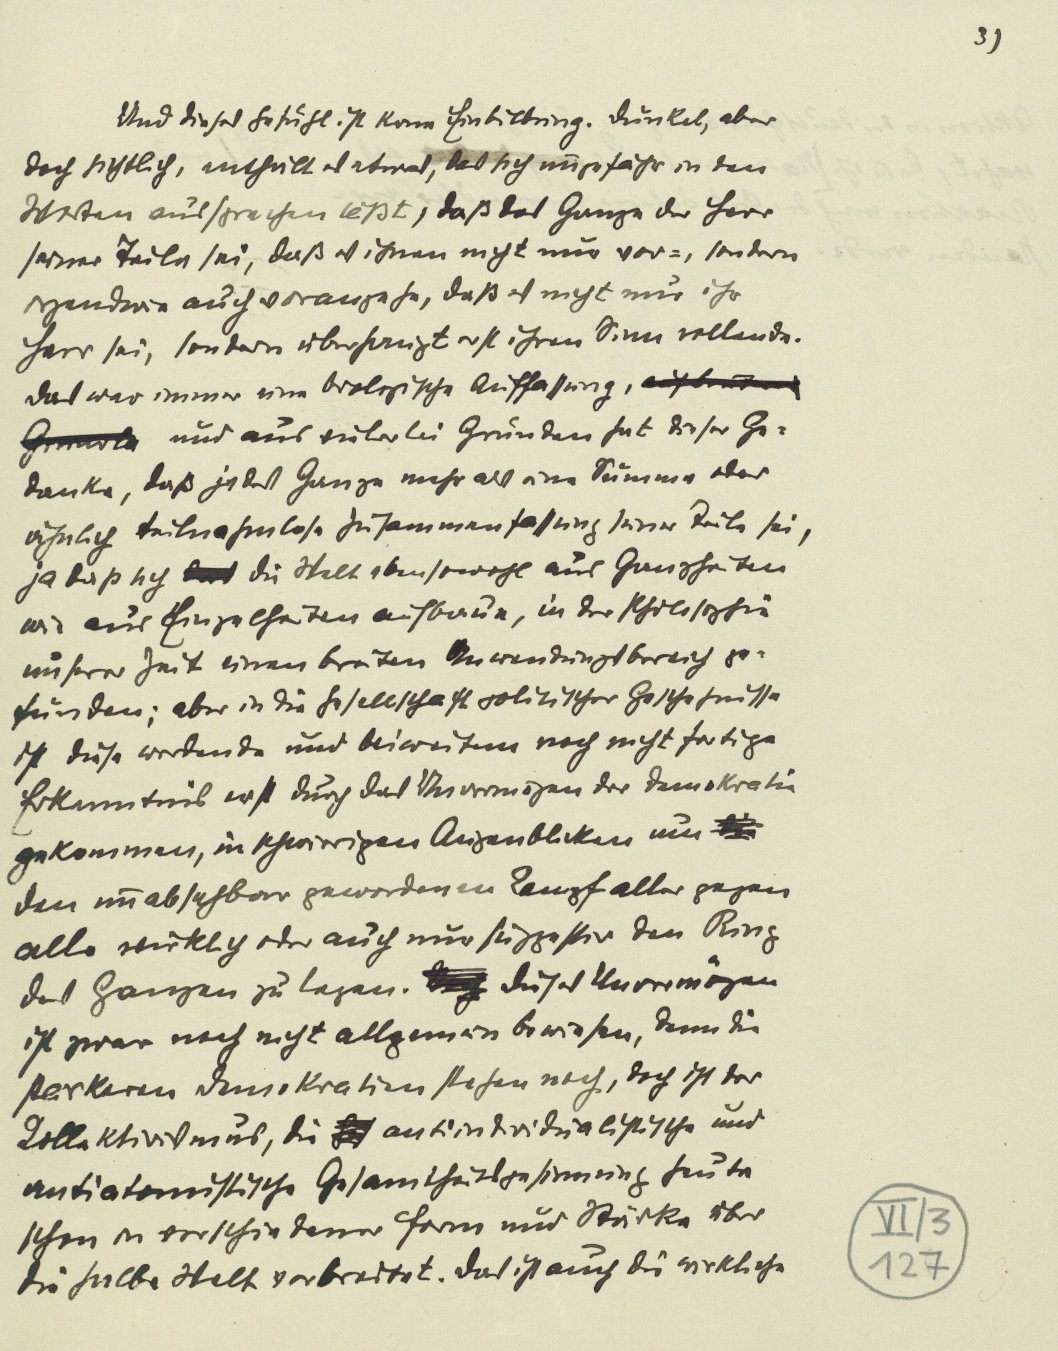 3)
Und dieses Gefühl ist keine Einbildung. Dunkel, aber
doch sichtlich, enthüllt es etwas, das sich ungefähr in den
Worten aussprechen läßt, daß das Ganze der Herr
seiner Teile sei, daß es ihnen nicht nur vor-, sondern
irgendwie auch vorangehe, daß es nicht nur ihr
Herr sei, sondern überhaupt erst ihren Sinn vollende.
Das war immer eine biologische Auffassung,
und aus vielerlei Gründen hat dieser Ge-
danke, daß jedes Ganze mehr als eine Summe oder
ähnlich teilnahmslose Zusammenfassung seiner Teile sei,
ja daß sich die Welt ebensowohl aus Ganzheiten
wie aus Einzelheiten aufbaue, in der Philosophie
unserer Zeit einen breiten Anwendungsbereich ge-
funden; aber in die Gesellschaft politischer Geschehnisse
ist diese werdende und beiweitem noch nicht fertige
Erkenntnis erst durch das Unvermögen der Demokratie
gekommen, in schwierigen Augenblicken um
den unabsehbar gewordenen Kampf aller gegen
alle wirklich oder auch nur suggestiv den Ring
des Ganzen zu legen. Dieses Unvermögen
ist zwar noch nicht allgemein bewiesen, denn die
stärkeren Demokratien stehen noch, doch ist der
Kollektivismus, die antiindividualistische und
antiatomistische Gesamtheitsgesinnung heute
schon in verschiedener Form und Stärke über
die halbe Welt verbreitet. Das ist auch die wirkliche
VI/3
127